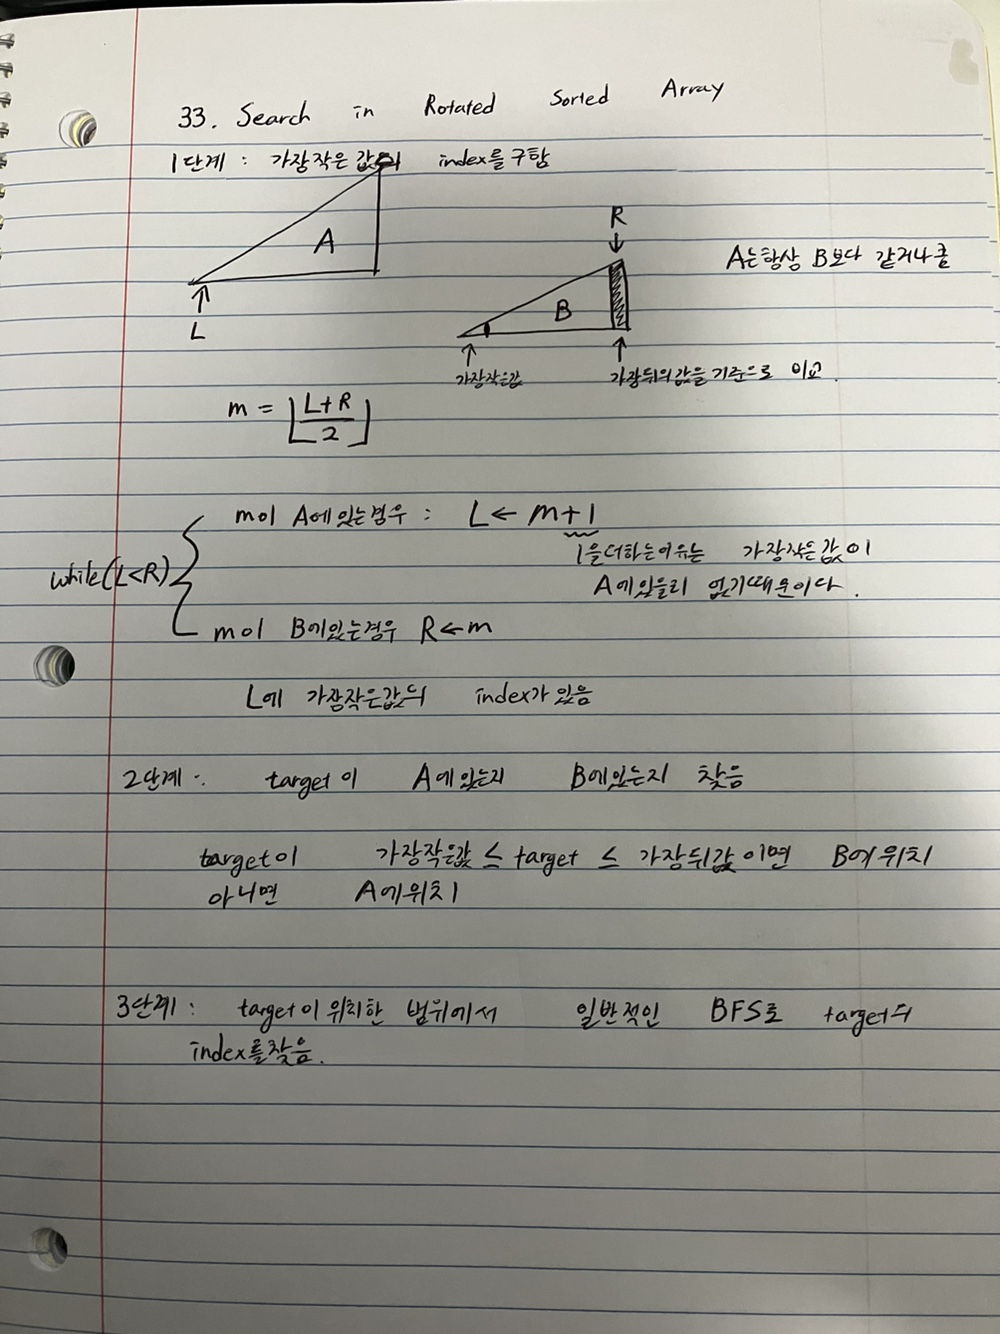 33. Search in Rotated Sorted Array
1단계 : 가장작은 값의 index를 구함
A
R
A는항상 B보다 같거나큼
B
L
가장작은값
가장뒤의값을 기준으로 비교.
m = ⌊(L+R)/2⌋
m이 A에있는경우 : L ← m+1
1을더하는이유는 가장작은값이
while(L<R)
A에있을리 없기때문이다.
m이 B에있는경우 R←m
L에 가장작은값의 index가 있음
2단계 : target이 A에있는지 B에있는지 찾음
target이 가장작은값 ≤ target ≤ 가장뒤값 이면 B에위치
아니면 A에위치
3단계 : target이 위치한 범위에서 일반적인 BFS로 target의
index를찾음.